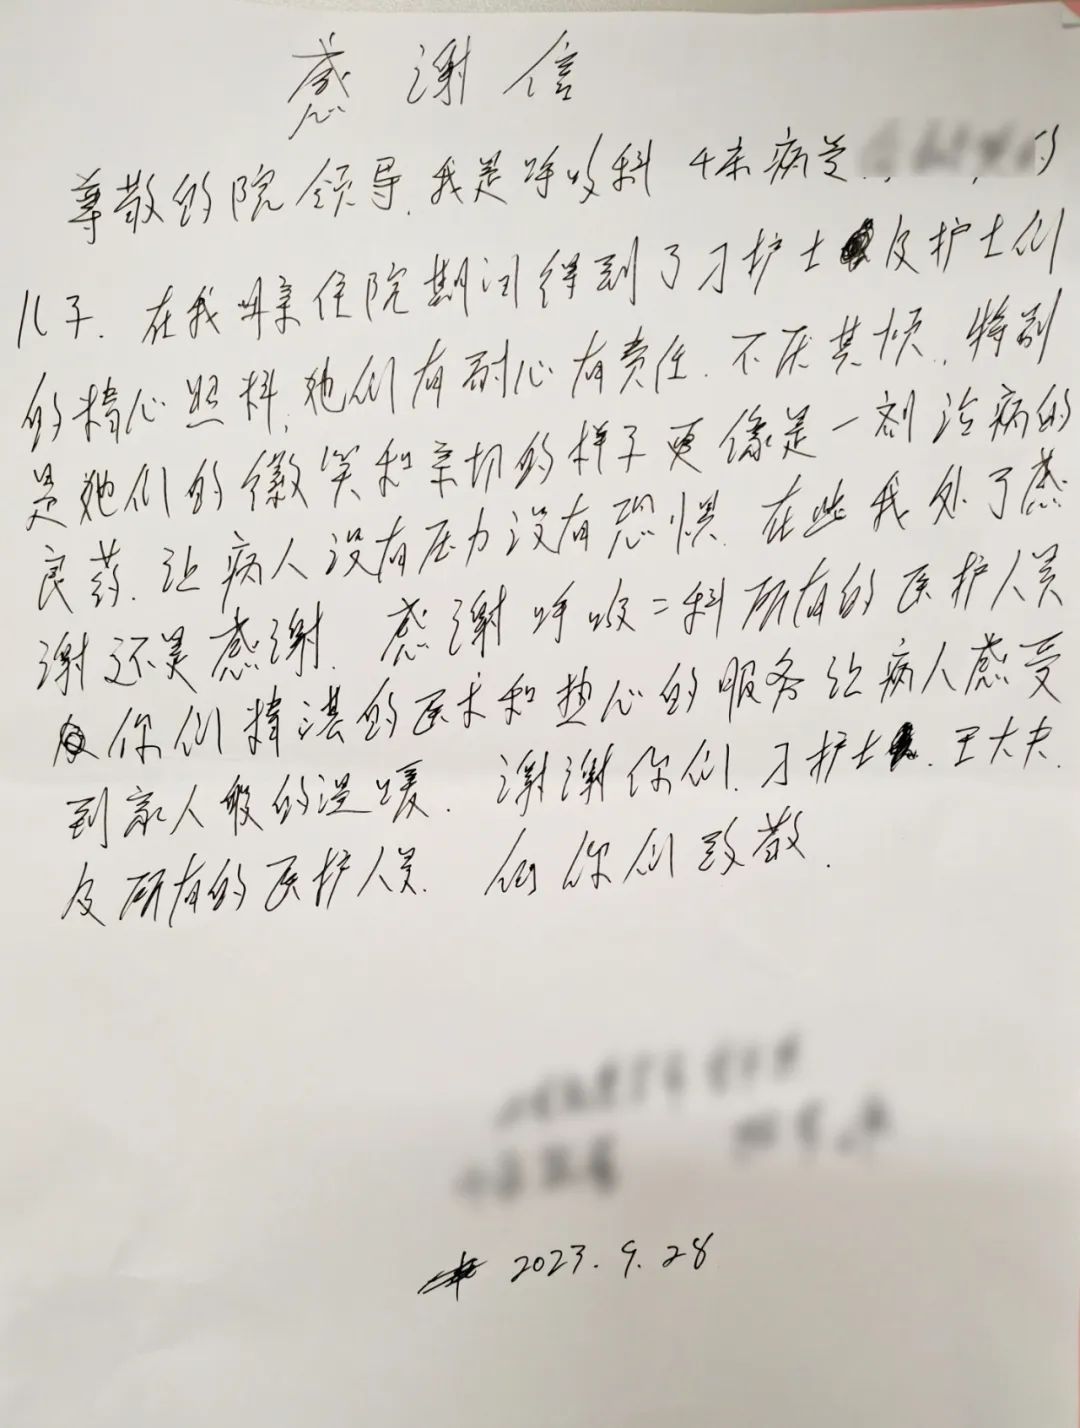 感谢信
尊敬的院领导.我是呼吸科 4床病号 的
儿子.在我母亲住院期间得到了刁护士及护士们
的精心照料,她们有耐心有责任.不厌其烦.特别
是她们的微笑和亲切的样子更像是一剂治病的
良药.让病人没有压力没有恐惧.在此我处了感
谢还是感谢.感谢呼吸二科所有的医护人员
你们精湛的医术和热心的服务让病人感受
到家人般的温暖.谢谢你们.刁护士.王大夫.
及所有的医护人员.向你们致敬.
2023.9.28